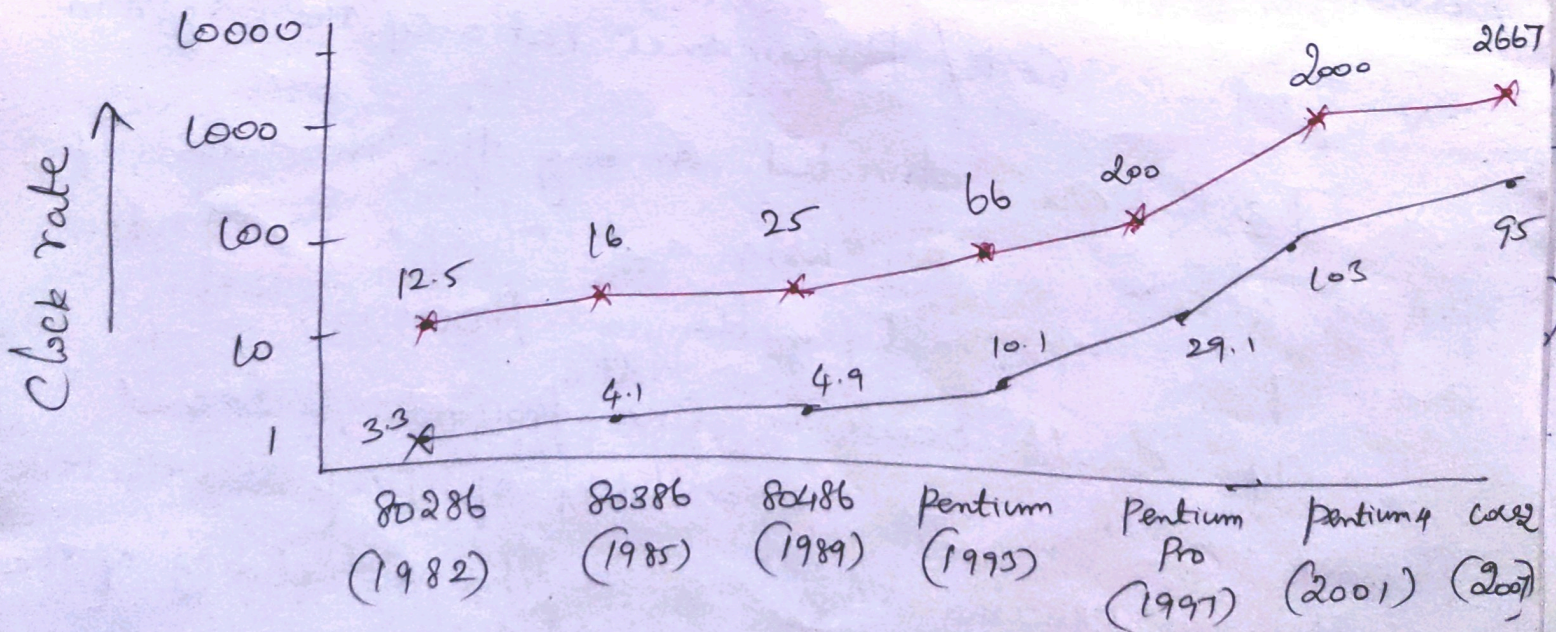 10000
1000
100
10
1
Clock rate
12.5
16
25
66
200
2000
2667
3.3
4.1
4.9
10.1
29.1
103
95
80286
(1982)
80386
(1985)
80486
(1989)
Pentium
(1993)
Pentium
Pro
(1997)
Pentium 4
(2001)
core2
(2007)